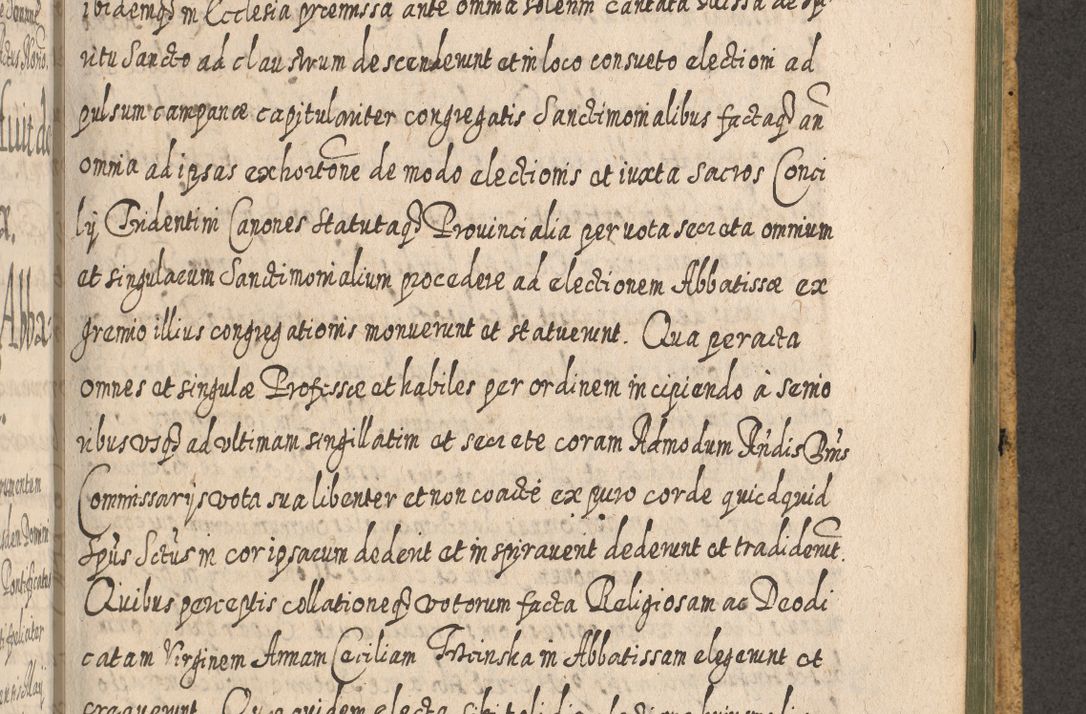 ibidemq₃ in Ecclesia præmissa ante omnia solenni cantata Missa de Spi
ritu Sancto ad claustrum descenderunt et in loco consueto electioni ad
pulsum campanæ capitulariter congregatis Sanctimonialibus factaq₃ an
omnia ad ipsas exhortone de modo electionis et iuxta Sacros Conci
lij Tridentini Canones Statutaq₃ Provincialia per vota secreta omnium
et singularum Sanctimonialium procedere ad electionem Abbatissæ ex
gremio illius congregationis monuerunt et statuerunt. Qua peracta
omnes et singulæ Professæ et habiles per ordinem incipiendo à senio
ribus vsq₃ ad vltimam singillatim et secrete coram Admodum Rndis Dnis
Commissarys vota sua libenter et non coacte ex puro corde quicdquid
Spūs Sctūs in cor ipsarum dederit et inspiraverit dederunt et tradiderūt.
Quibus perceptis collationeq₃ votorum facta Religiosam ac Deodi
catam Virginem Annam Ceciliam in Abbatissam elegerunt et
Qua quidem electa
fuit de
Abba
Domini
Pontificatus
feliciter